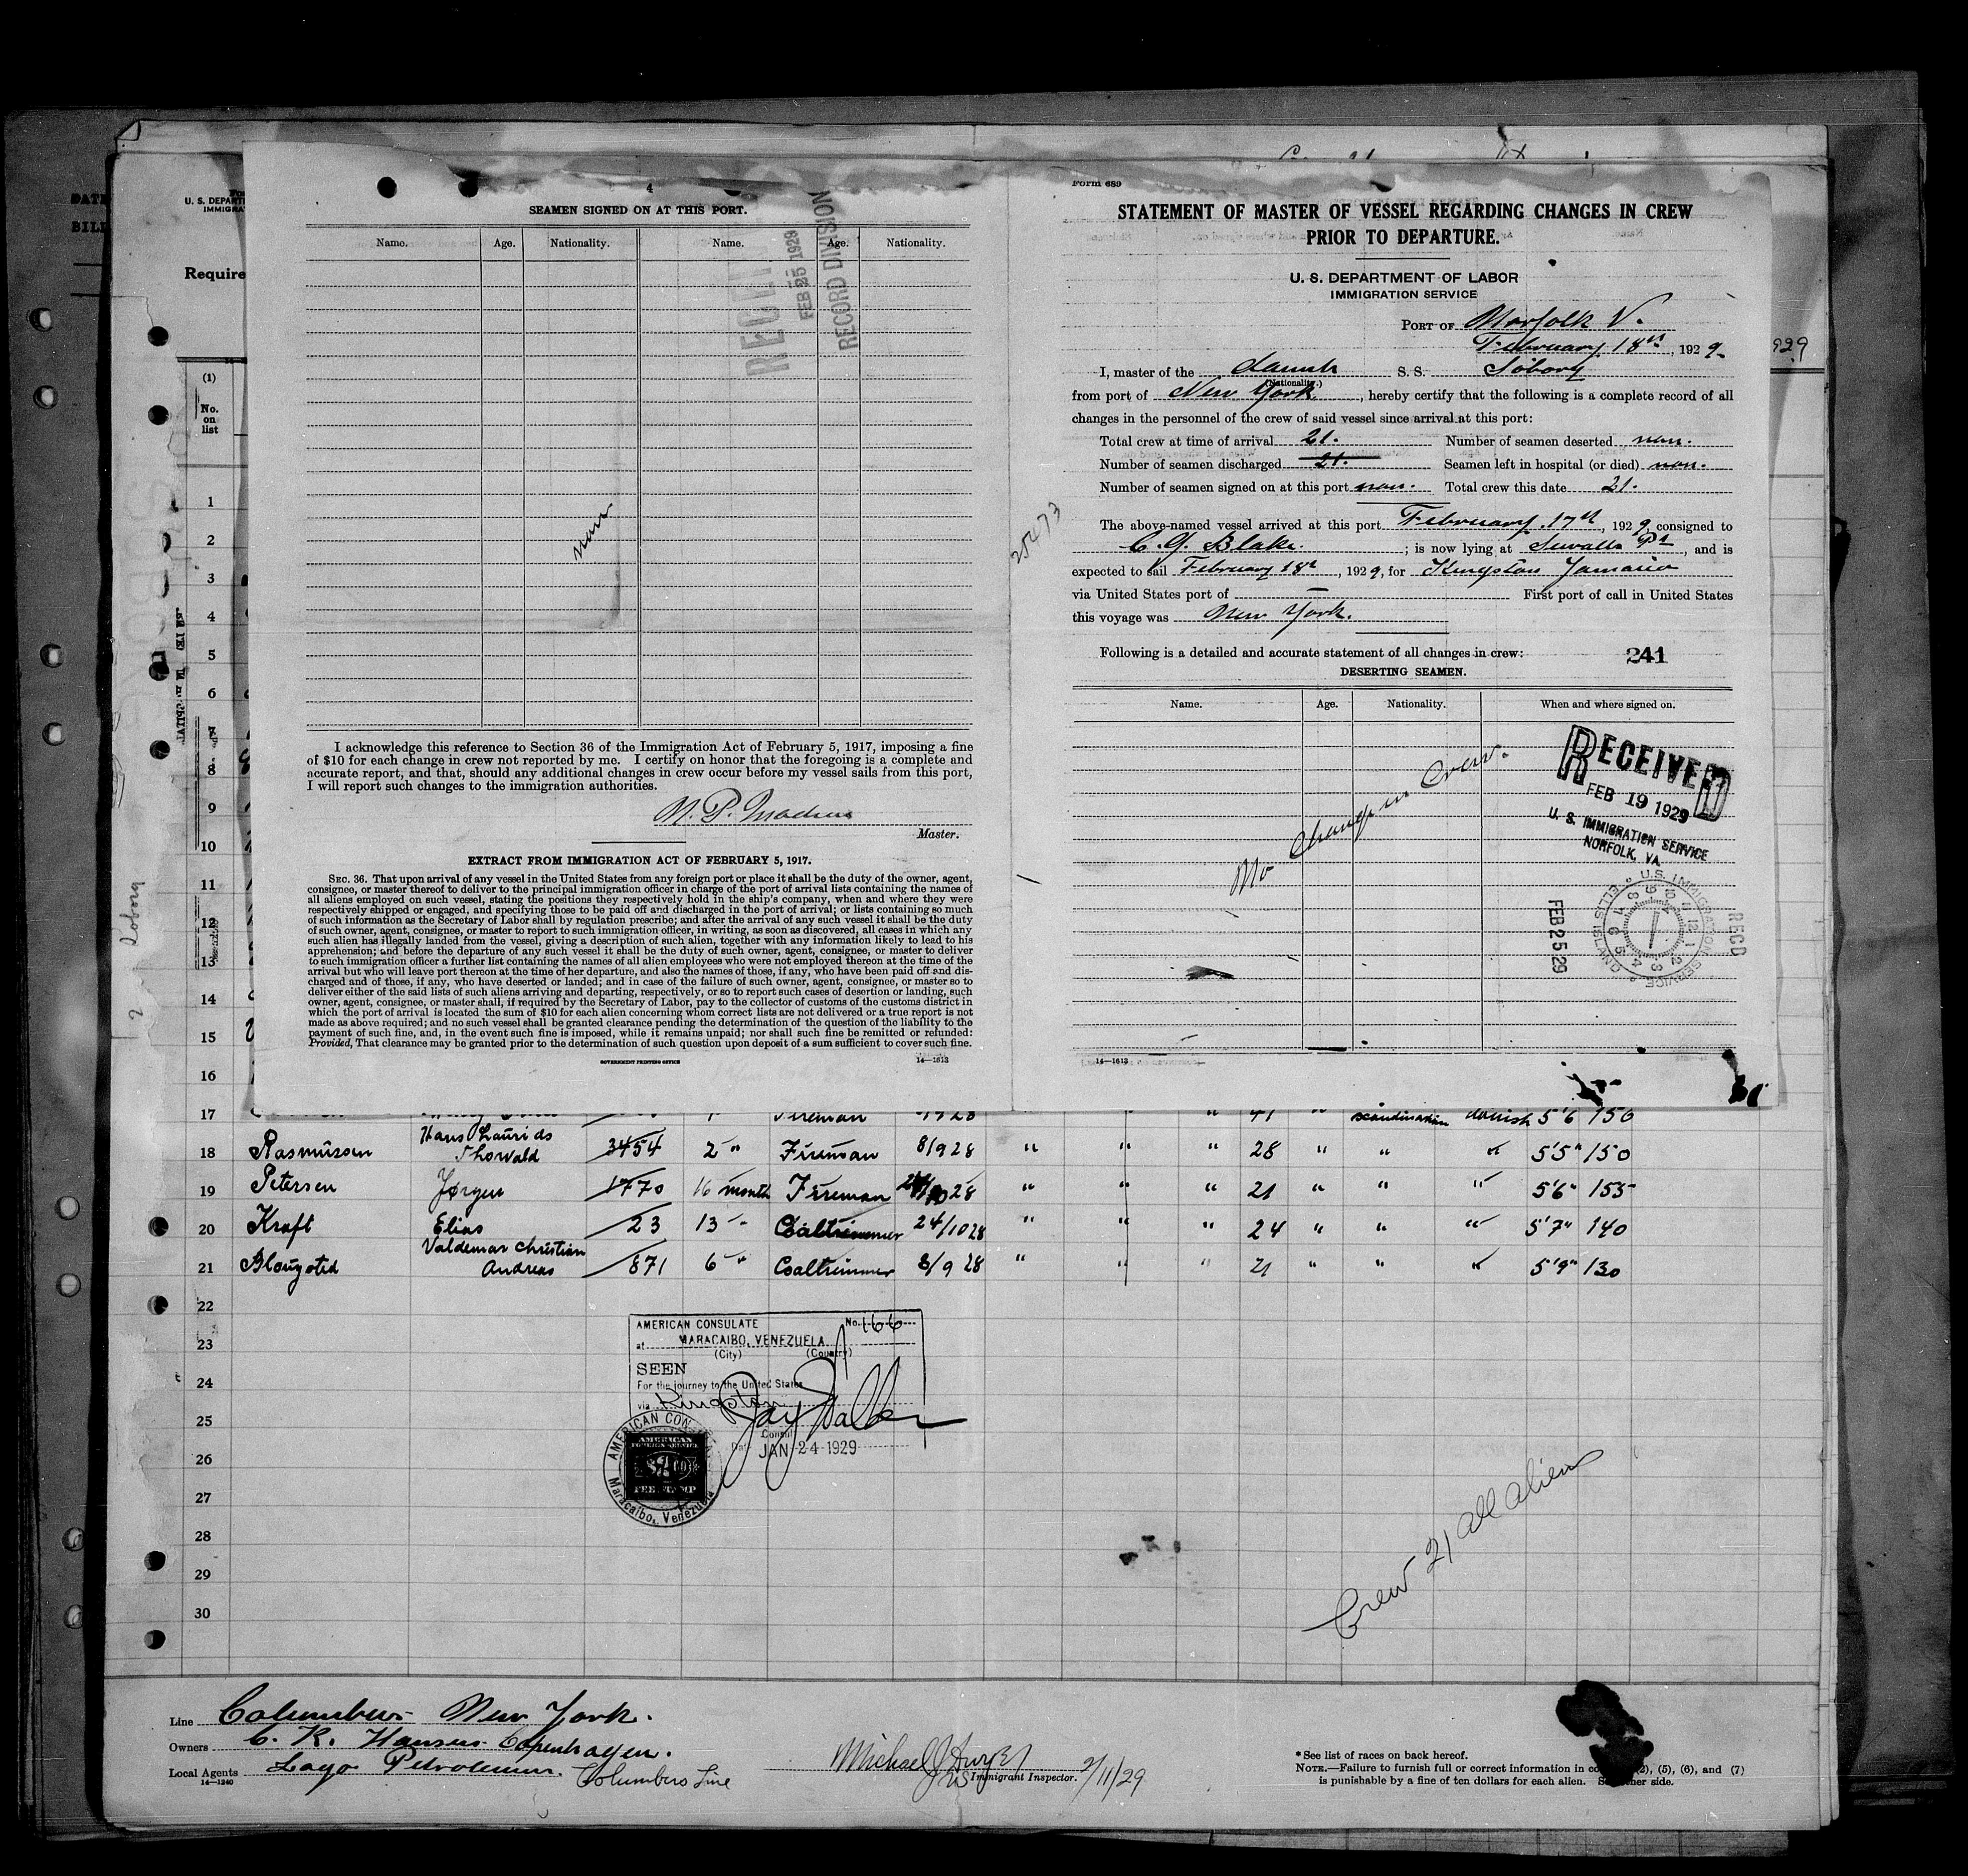 4
SEAMEN SIGNED ON AT THIS PORT.
Name. Age. Nationality. Name. Age. Nationality.
FEB 25 1929
RECORD DIVISION
non
I acknowledge this reference to Section 36 of the Immigration Act of February 5, 1917, imposing a fine
of $10 for each change in crew not reported by me. I certify on honor that the foregoing is a complete and
accurate report, and that, should any additional changes in crew occur before my vessel sails from this port,
I will report such changes to the immigration authorities.
Master.
EXTRACT FROM IMMIGRATION ACT OF FEBRUARY 5, 1917.
SEC. 36. That upon arrival of any vessel in the United States from any foreign port or place it shall be the duty of the owner, agent,
consignee, or master thereof to deliver to the principal immigration officer in charge of the port of arrival lists containing the names of
all aliens employed on such vessel, stating the positions they respectively hold in the ship's company, when and where they were
respectively shipped or engaged, and specifying those to be paid off and discharged in the port of arrival; or lists containing so much
of such information as the Secretary of Labor shall by regulation prescribe; and after the arrival of any such vessel it shall be the duty
of such owner, agent, consignee, or master to report to such immigration officer, in writing, as soon as discovered, all cases in which any
such alien has illegally landed from the vessel, giving a description of such alien, together with any information likely to lead to his
apprehension; and before the departure of any such vessel it shall be the duty of such owner, agent, consignee, or master to deliver
to such immigration officer a further list containing the names of all alien employees who were not employed thereon at the time of the
arrival but who will leave port thereon at the time of her departure, and also the names of those, if any, who have been paid off and dis-
charged and of those, if any, who have deserted or landed; and in case of the failure of such owner, agent, consignee, or master so to
deliver either of the said lists of such aliens arriving and departing, respectively, or so to report such cases of desertion or landing, such
owner, agent, consignee, or master shall, if required by the Secretary of Labor, pay to the collector of customs of the customs district in
which the port of arrival is located the sum of $10 for each alien concerning whom correct lists are not delivered or a true report is not
made as above required; and no such vessel shall be granted clearance pending the determination of the question of the liability to the
payment of such fine, and, in the event such fine is imposed, while it remains unpaid; nor shall such fine be remitted or refunded:
Provided, That clearance may be granted prior to the determination of such question upon deposit of a sum sufficient to cover such fine.
GOVERNMENT PRINTING OFFICE 14—1613
Form 689
STATEMENT OF MASTER OF VESSEL REGARDING CHANGES IN CREW
PRIOR TO DEPARTURE.
U. S. DEPARTMENT OF LABOR
IMMIGRATION SERVICE
PORT OF Norfolk V.
February 18th, 1929
I, master of the danish S. S. Söborg
(Nationality.)
from port of New York, hereby certify that the following is a complete record of all
changes in the personnel of the crew of said vessel since arrival at this port:
Total crew at time of arrival 21. Number of seamen deserted non.
Number of seamen discharged 21. Seamen left in hospital (or died) non.
Number of seamen signed on at this port non. Total crew this date 21.
The above-named vessel arrived at this port February 17th, 1929, consigned to
C. G. Blake.; is now lying at Sewalls Pt, and is
expected to sail February 18th, 1929, for Kingston Jamaica
via United States port of — First port of call in United States
this voyage was New York.
Following is a detailed and accurate statement of all changes in crew:
241
DESERTING SEAMEN.
Name. Age. Nationality. When and where signed on.
No Change in Crew.
RECEIVED
FEB 19 1929
U. S. IMMIGRATION SERVICE
NORFOLK, VA.
FEB 25 29
U.S. IMMIGRATION SERVICE ELLIS ISLAND
RECD
14—1613
DATE
BILL
U. S. DEPART
IMMIGRA
Require
929
(1)
No.
on
list
1
2
3
4
5
6
7
8
9
10
11
12
13
14
15
16
17 Fireman 41 " Scandinavian danish 5'6 150
18 Rasmussen Hans Laurids Thorvald 3454 2 " Fireman 8/9 28 " " " 28 " " " 5'5" 150
19 Petersen Jørgen 1770 16 month Fireman 28 " " " 21 " " " 5'6" 155
20 Kraft Elias 23 13 " Coaltrimmer 24/10 28 " " " 24 " " " 5'7" 140
21 Valdemar Christian Andreas 871 6 " Coaltrimmer 8/9 28 " " " 21 " " " 5'9" 130
22
23
24
25
26
27
28
29
30
AMERICAN CONSULATE No. 166
at MARACAIBO, VENEZUELA
(City) (Country)
SEEN
For the journey to the United States
via Kingston
Consul
Date JAN 24 1929
AMERICAN
FOREIGN SERVICE
FEE STAMP
Maracaibo, Venezuela
Crew 21 all aliens
Line Columbus New York.
Owners C. K. Hansen Copenhagen.
Local Agents Lago Petroleum. Columbus Line
14—1240
Immigrant Inspector. 2/11/29
* See list of races on back hereof.
NOTE.—Failure to furnish full or correct information in co (2), (5), (6), and (7)
is punishable by a fine of ten dollars for each alien. See other side.